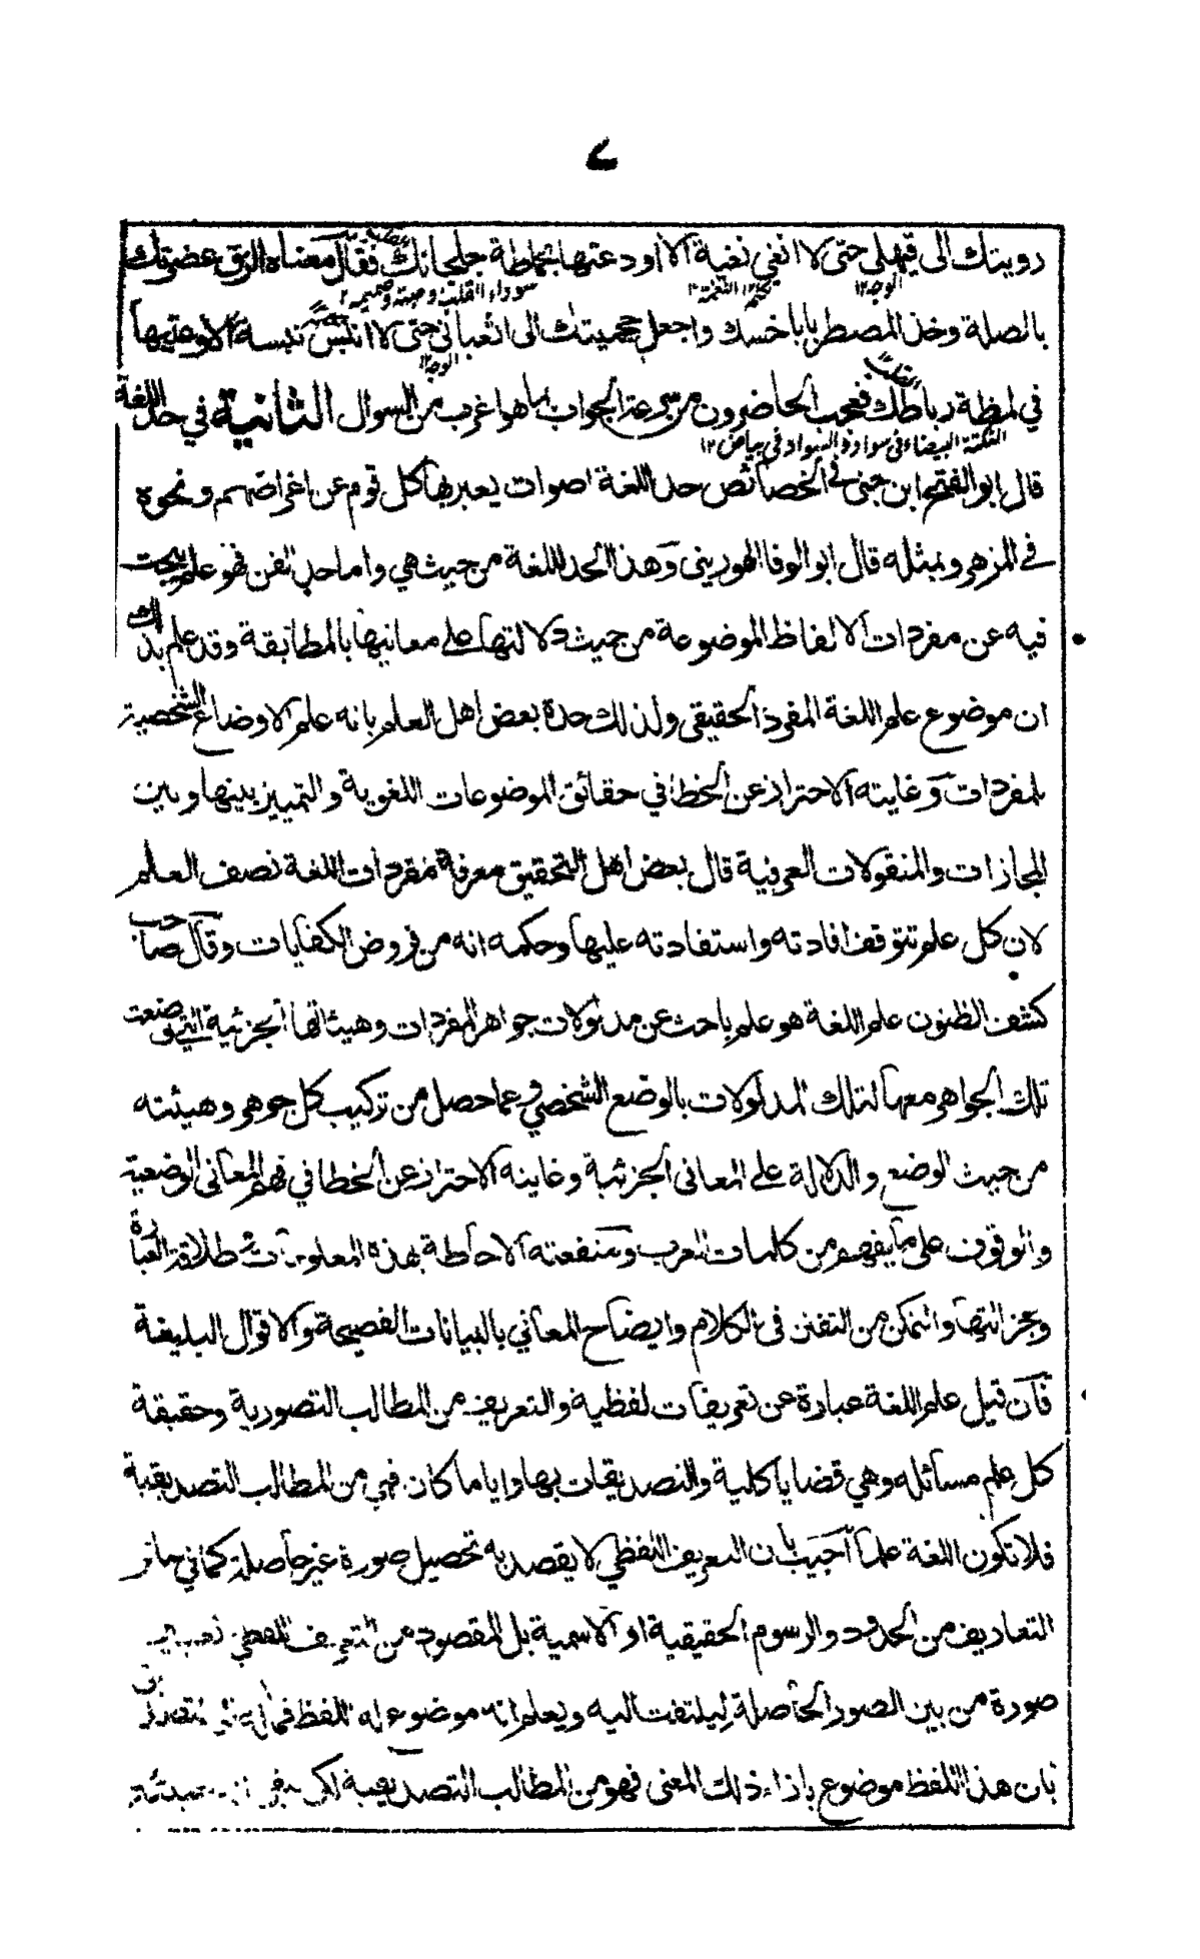 ٧
رويتك الى قيهلي حتى لا انغي نغية الا اودعتها بحماطة جلجلانك فقال معناه الزق عضرتك
الوجه ١٢ النغمة ١٢ سوداء القلب وحبته وصميمه ١٢
بالصلة وخذ المصطر باباخسك واجعل حجمتيك الى اثعباني حتى لا انبس نبسة الا وعيتها
الوجه ١٢
في لمظة رباطك فعجب الحاضرون من سرعة الجواب بما هو اغرب من السوال الثانية في حد اللغة
النكتة البيضاء في سواد او السواد في بياض ١٢
قال ابو الفتح ابن جني في الخصائص حد اللغة اصوات يعبر بها كل قوم عن اغراضهم ونحوه
في المزهر وبمثله قال ابو الوفا الهوريني وهذا الحد للغة من حيث هي واما حد الفن فهو علم يبحث
فيه عن مفردات الالفاظ الموضوعة من حيث دلالتها على معانيها بالمطابقة وقد علم بذلك
ان موضوع علم اللغة المفرد الحقيقي ولذلك حده بعض اهل العلم بانه علم الاوضاع الشخصية
للمفردات وغايته الاحتراز عن الخطا في حقائق الموضوعات اللغوية والتمييز بينها وبين
المجازات والمنقولات العرفية قال بعض اهل التحقيق معرفة مفردات اللغة نصف العلم
لان كل علم تتوقف افادته واستفادته عليها وحكمه انه من فروض الكفايات وقال صاحب
كشف الظنون علم اللغة هو علم باحث عن مدلولات جواهر المفردات وهيئاتها الجزئية التي وضعت
تلك الجواهر معها لتلك المدلولات بالوضع الشخصي وعما حصل من تركيب كل جوهر وهيئته
من حيث الوضع والدلالة على المعاني الجزئية وغايته الاحتراز عن الخطا في فهم المعاني الوضعية
والوقوف على ما يفهم من كلمات العرب ومنفعته الاحاطة بهذه المعلومات وطلاقة العبارة
وجزالتها والتمكن من التفنن في الكلام وايضاح المعاني بالبيانات الفصيحة والاقوال البليغة
فان قيل علم اللغة عبارة عن تعريفات لفظية والتعريف من المطالب التصورية وحقيقة
كل علم مسائله وهي قضايا كلية والتصديقات بها وايا ما كان فهي من المطالب التصديقية
فلا تكون اللغة علما اجيب بان التعريف اللفظي لا يقصد به تحصيل صورة غير حاصلة كما في سائر
التعاريف من الحدود والرسوم الحقيقية او الاسمية بل المقصود من التعريف اللفظي تعيين
صورة من بين الصور الحاصلة ليلتفت اليه ويعلم انه موضوع له اللفظ فماله الى التصديق
بان هذا اللفظ موضوع بازاء ذلك المعنى فهو من المطالب التصديقية لكن يبقى